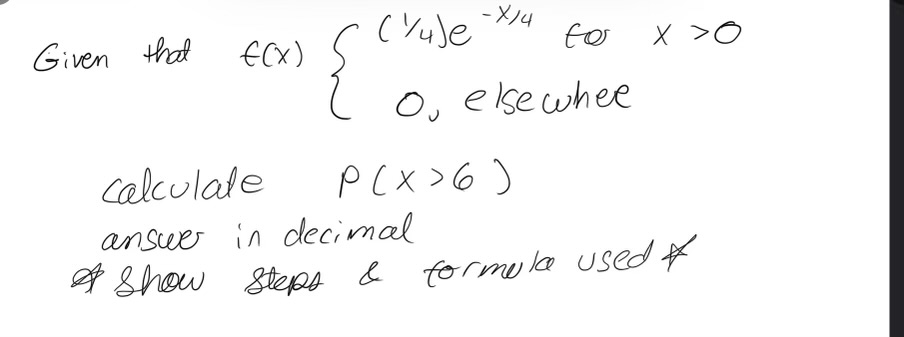 Given that f(x) { (1/4)e^-x/4 for x >0
0, elsewhee
calculate P(x>6)
answer in decimal
* Show steps & formula used *